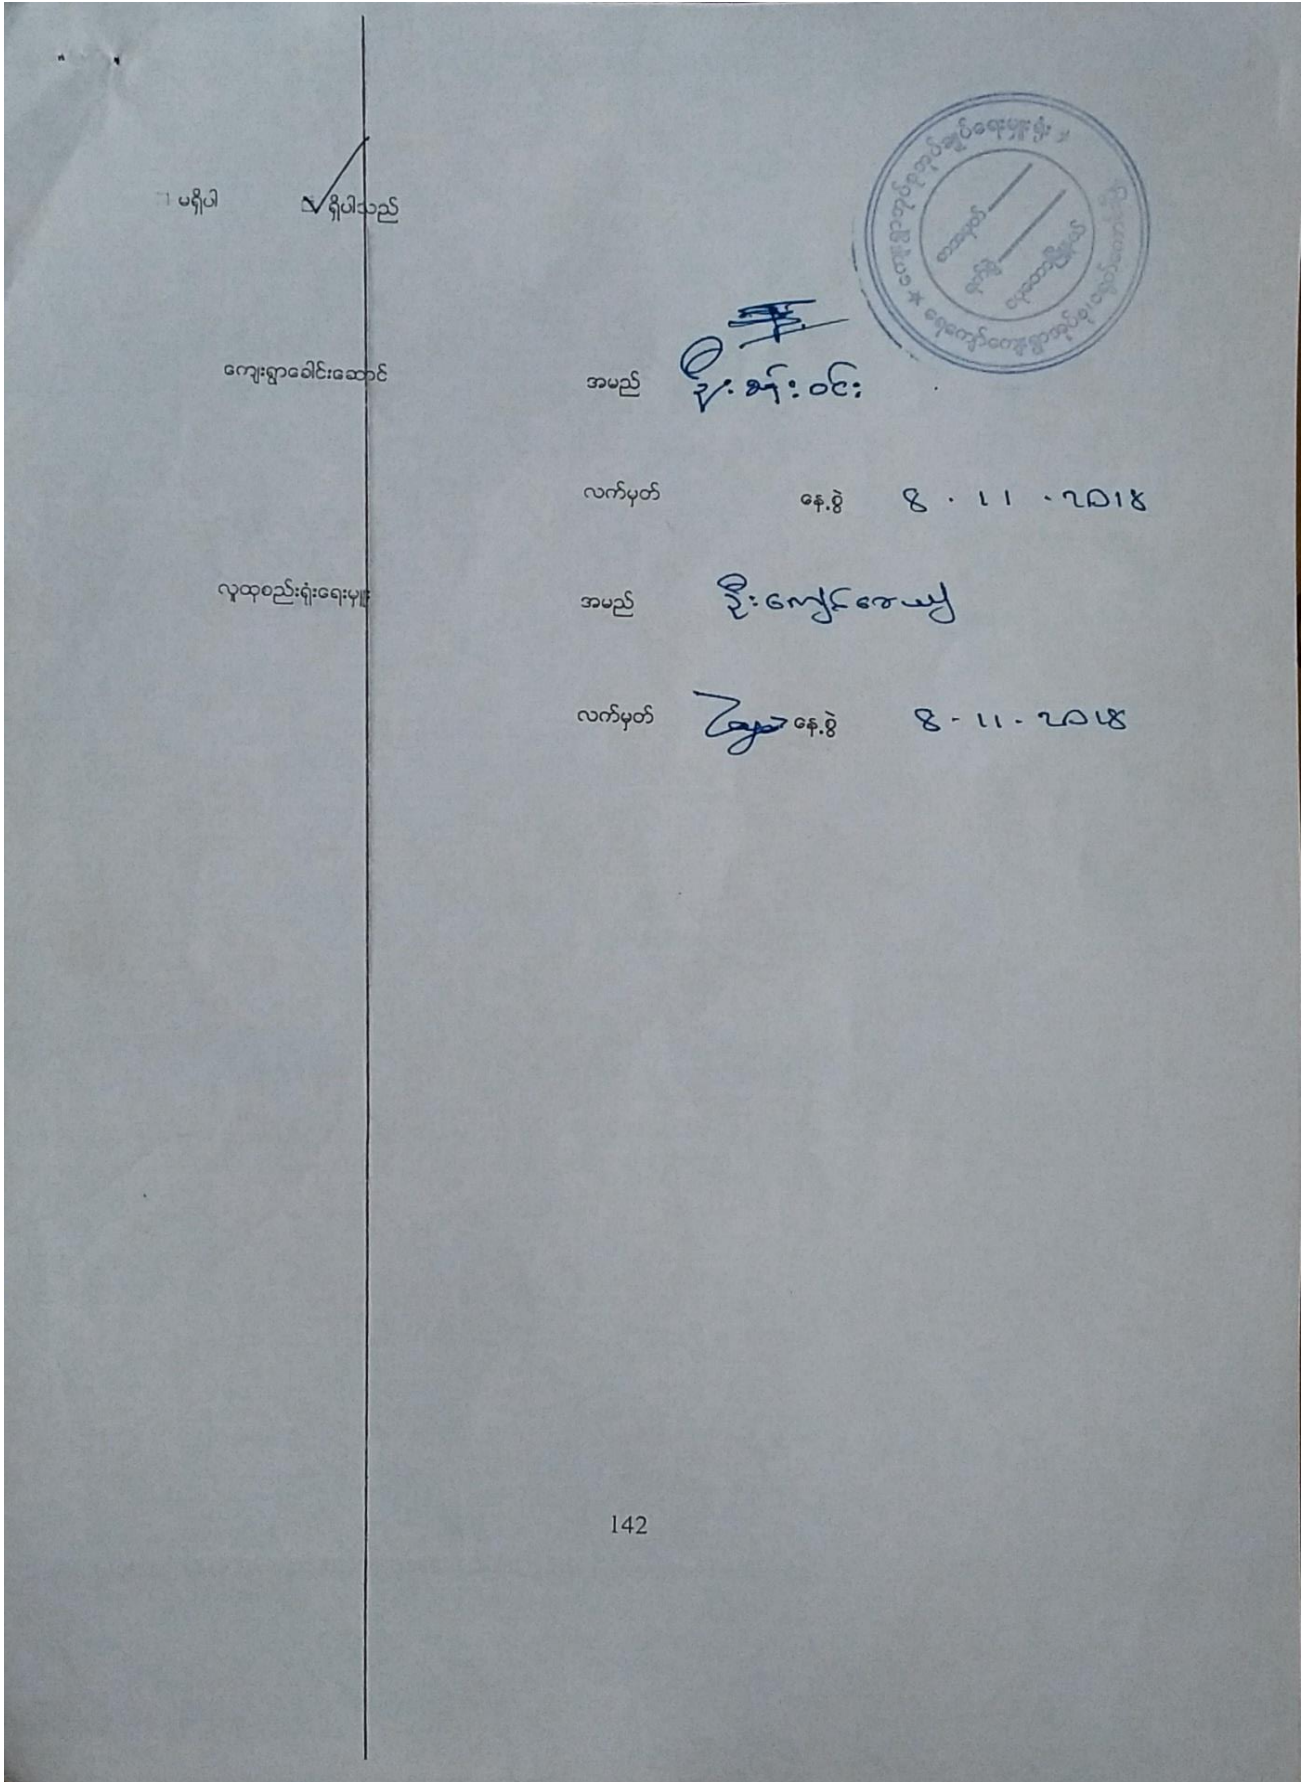 မရှိပါ ရှိပါသည်
ကျေးရွာခေါင်းဆောင် အမည် ဦးစန်းဝင်း
လက်မှတ် နေ့စွဲ 8.11.2018
လူထုစည်းရုံးရေးမှူး အမည် ဦးကျော်ဇေယျ
လက်မှတ် နေ့စွဲ 8-11-2018
142